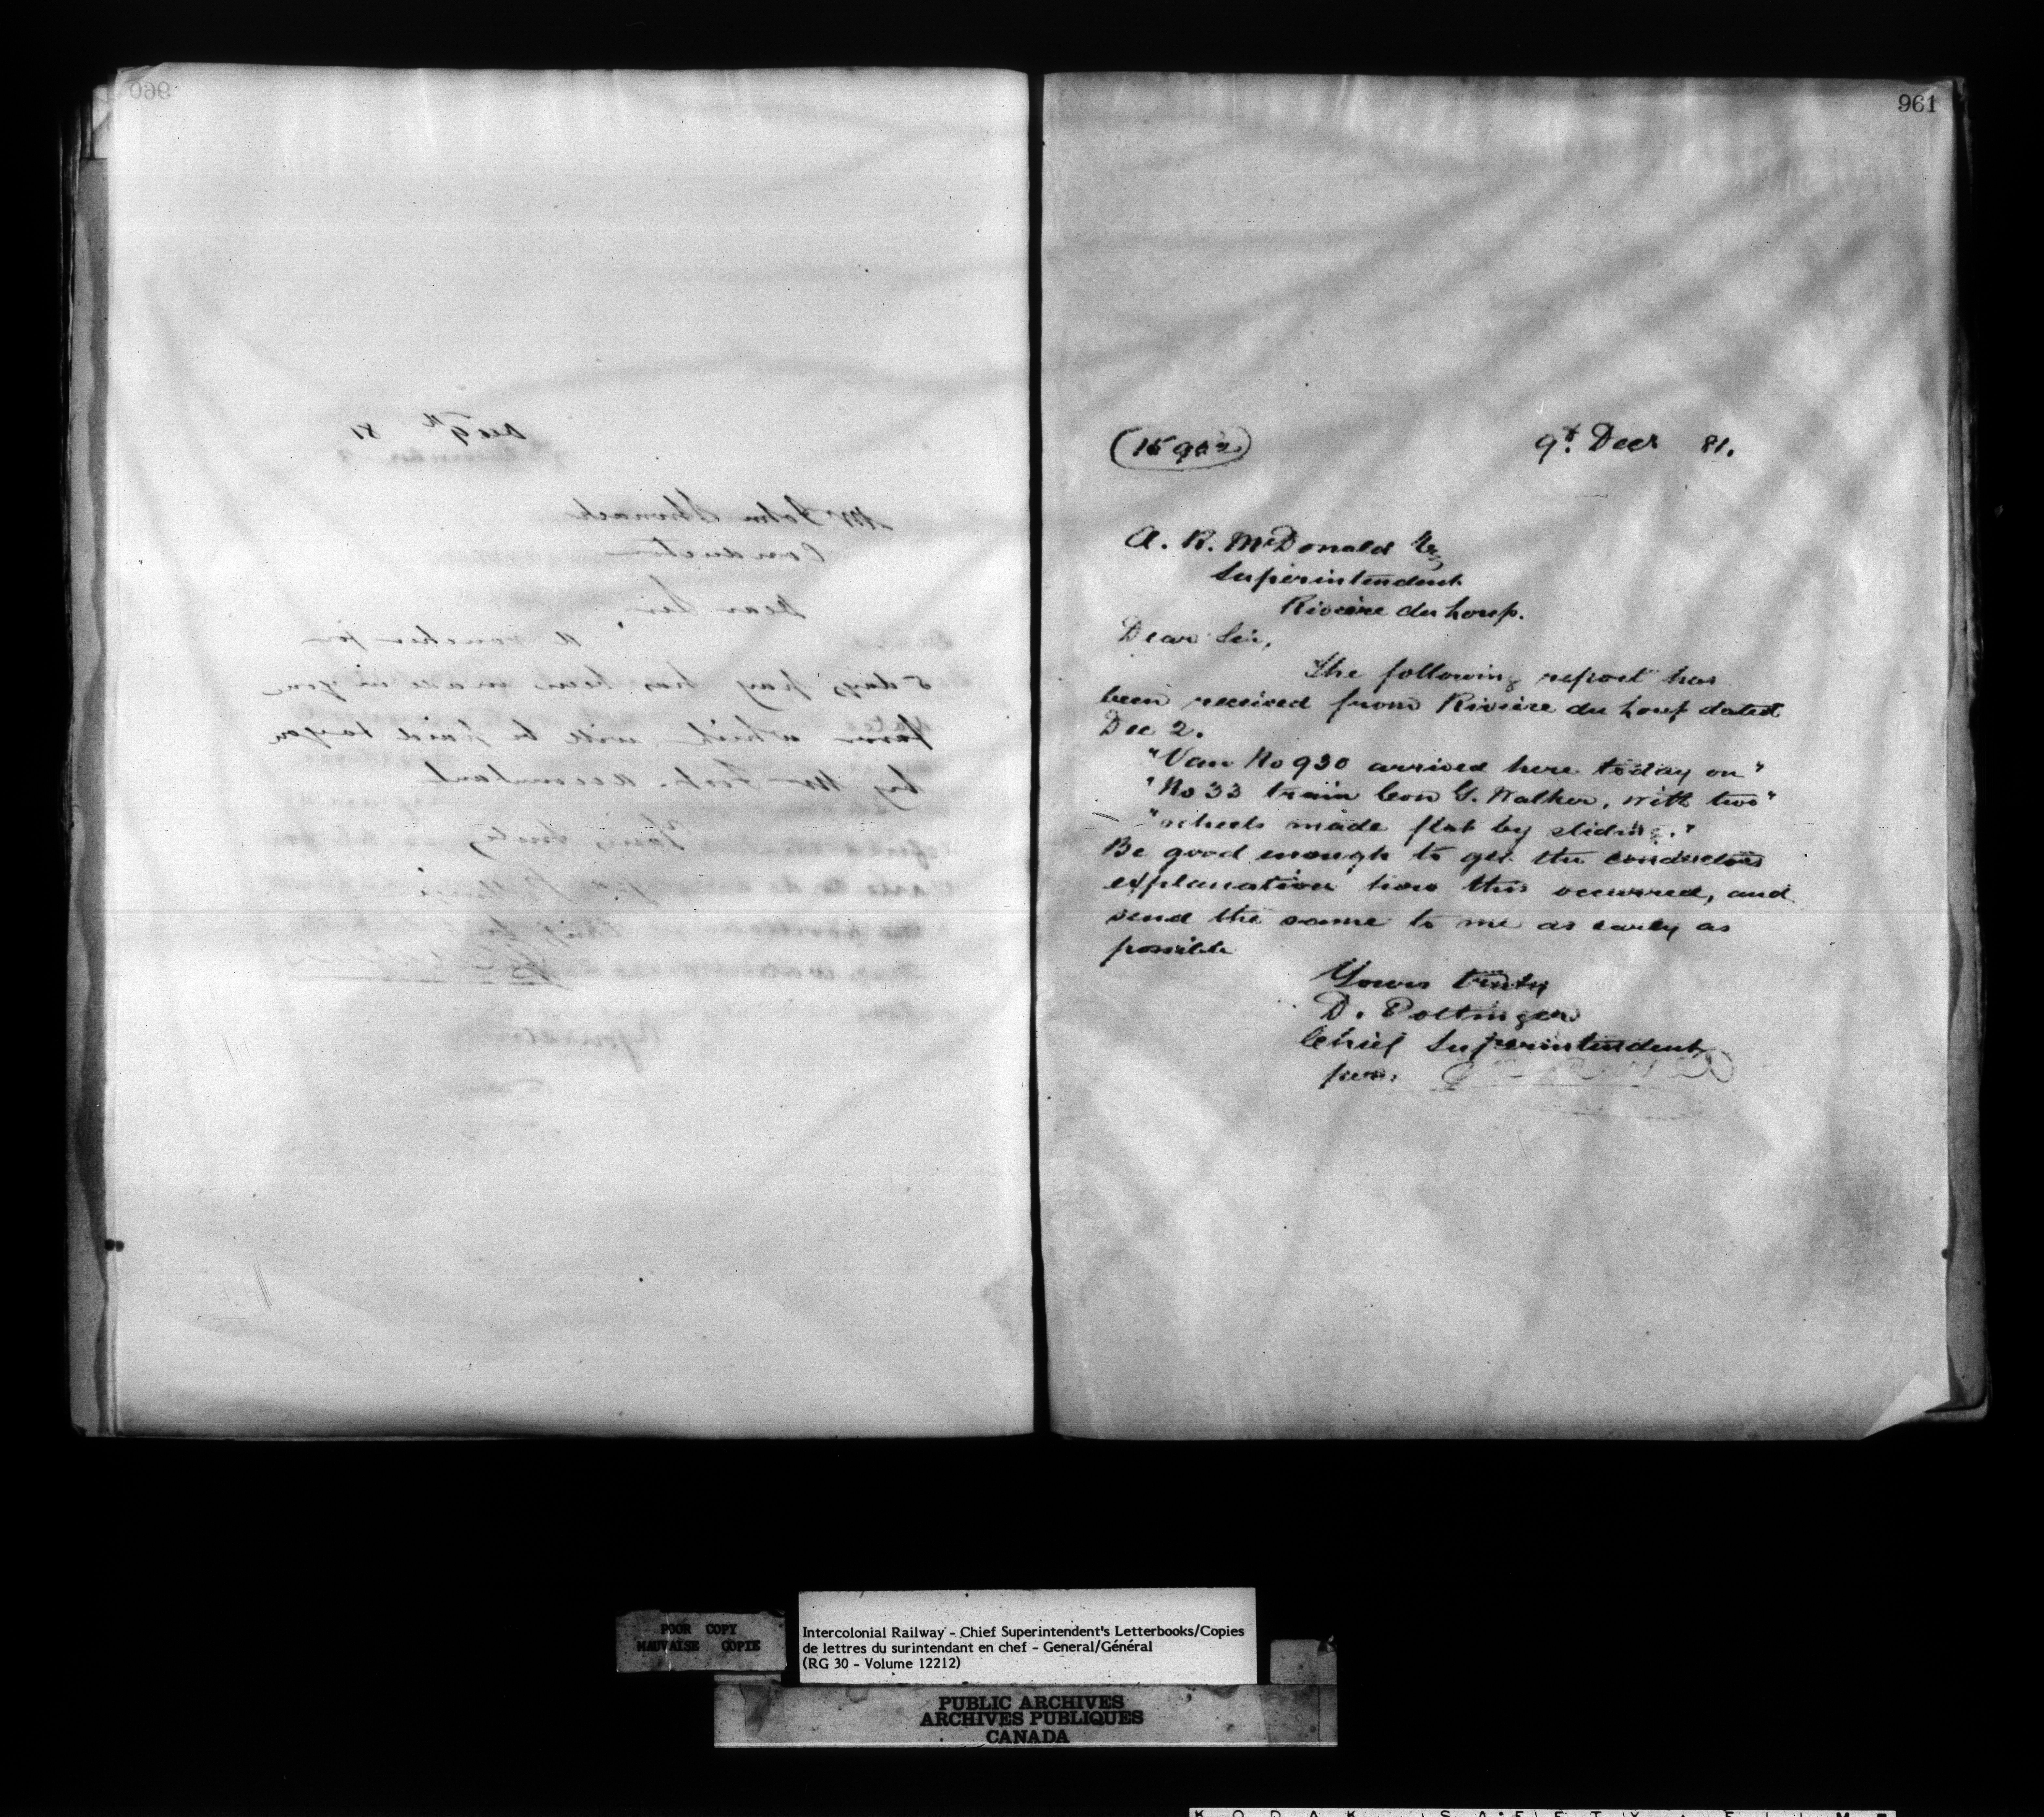 960
Dec 9th 81
Mr John Stronach
Conductor
Dear Sir,
A voucher for
5 days pay has been made in your
favor which will be paid to you
by Mr Foot. Accountant
Yours truly
961
9th Decr 81.
A. R. McDonald Esq
Superintendent
Riviere du Loup.
Dear Sir,
The following report has
been received from Riviere du Loup dated
Dec 2.
"Van No 930 arrived here today on"
"No 33 train Con G. Walker, with two"
"wheels made flat by sliding."
Be good enough to get the conductors
explanation how this occurred, and
send the same to me as early as
possible
Yours truly
D. Pottinger
Chief Superintendent
per.
POOR COPY
MAUVAISE COPIE
Intercolonial Railway - Chief Superintendent's Letterbooks/Copies
de lettres du surintendant en chef - General/Général
(RG 30 - Volume 12212)
PUBLIC ARCHIVES
ARCHIVES PUBLIQUES
CANADA
KODAK SAFETY FILM